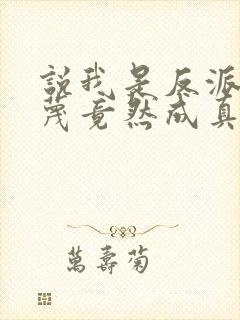 說我是反派
蔑竟然成真
萬壽菊